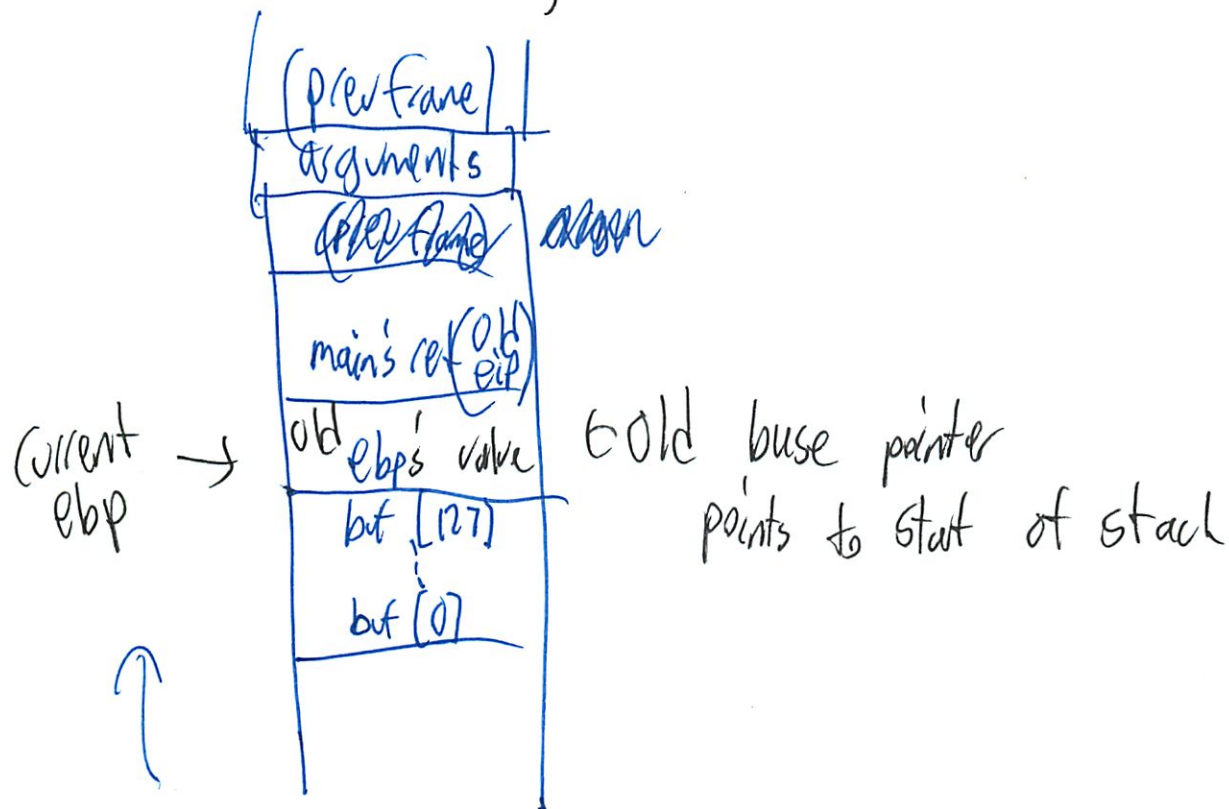 (prev frame)
arguments
(prev frame)
main's ret (old
eip)
current → old ebp's value ← old base pointer
ebp points to start of stack
buf [127]
buf [0]